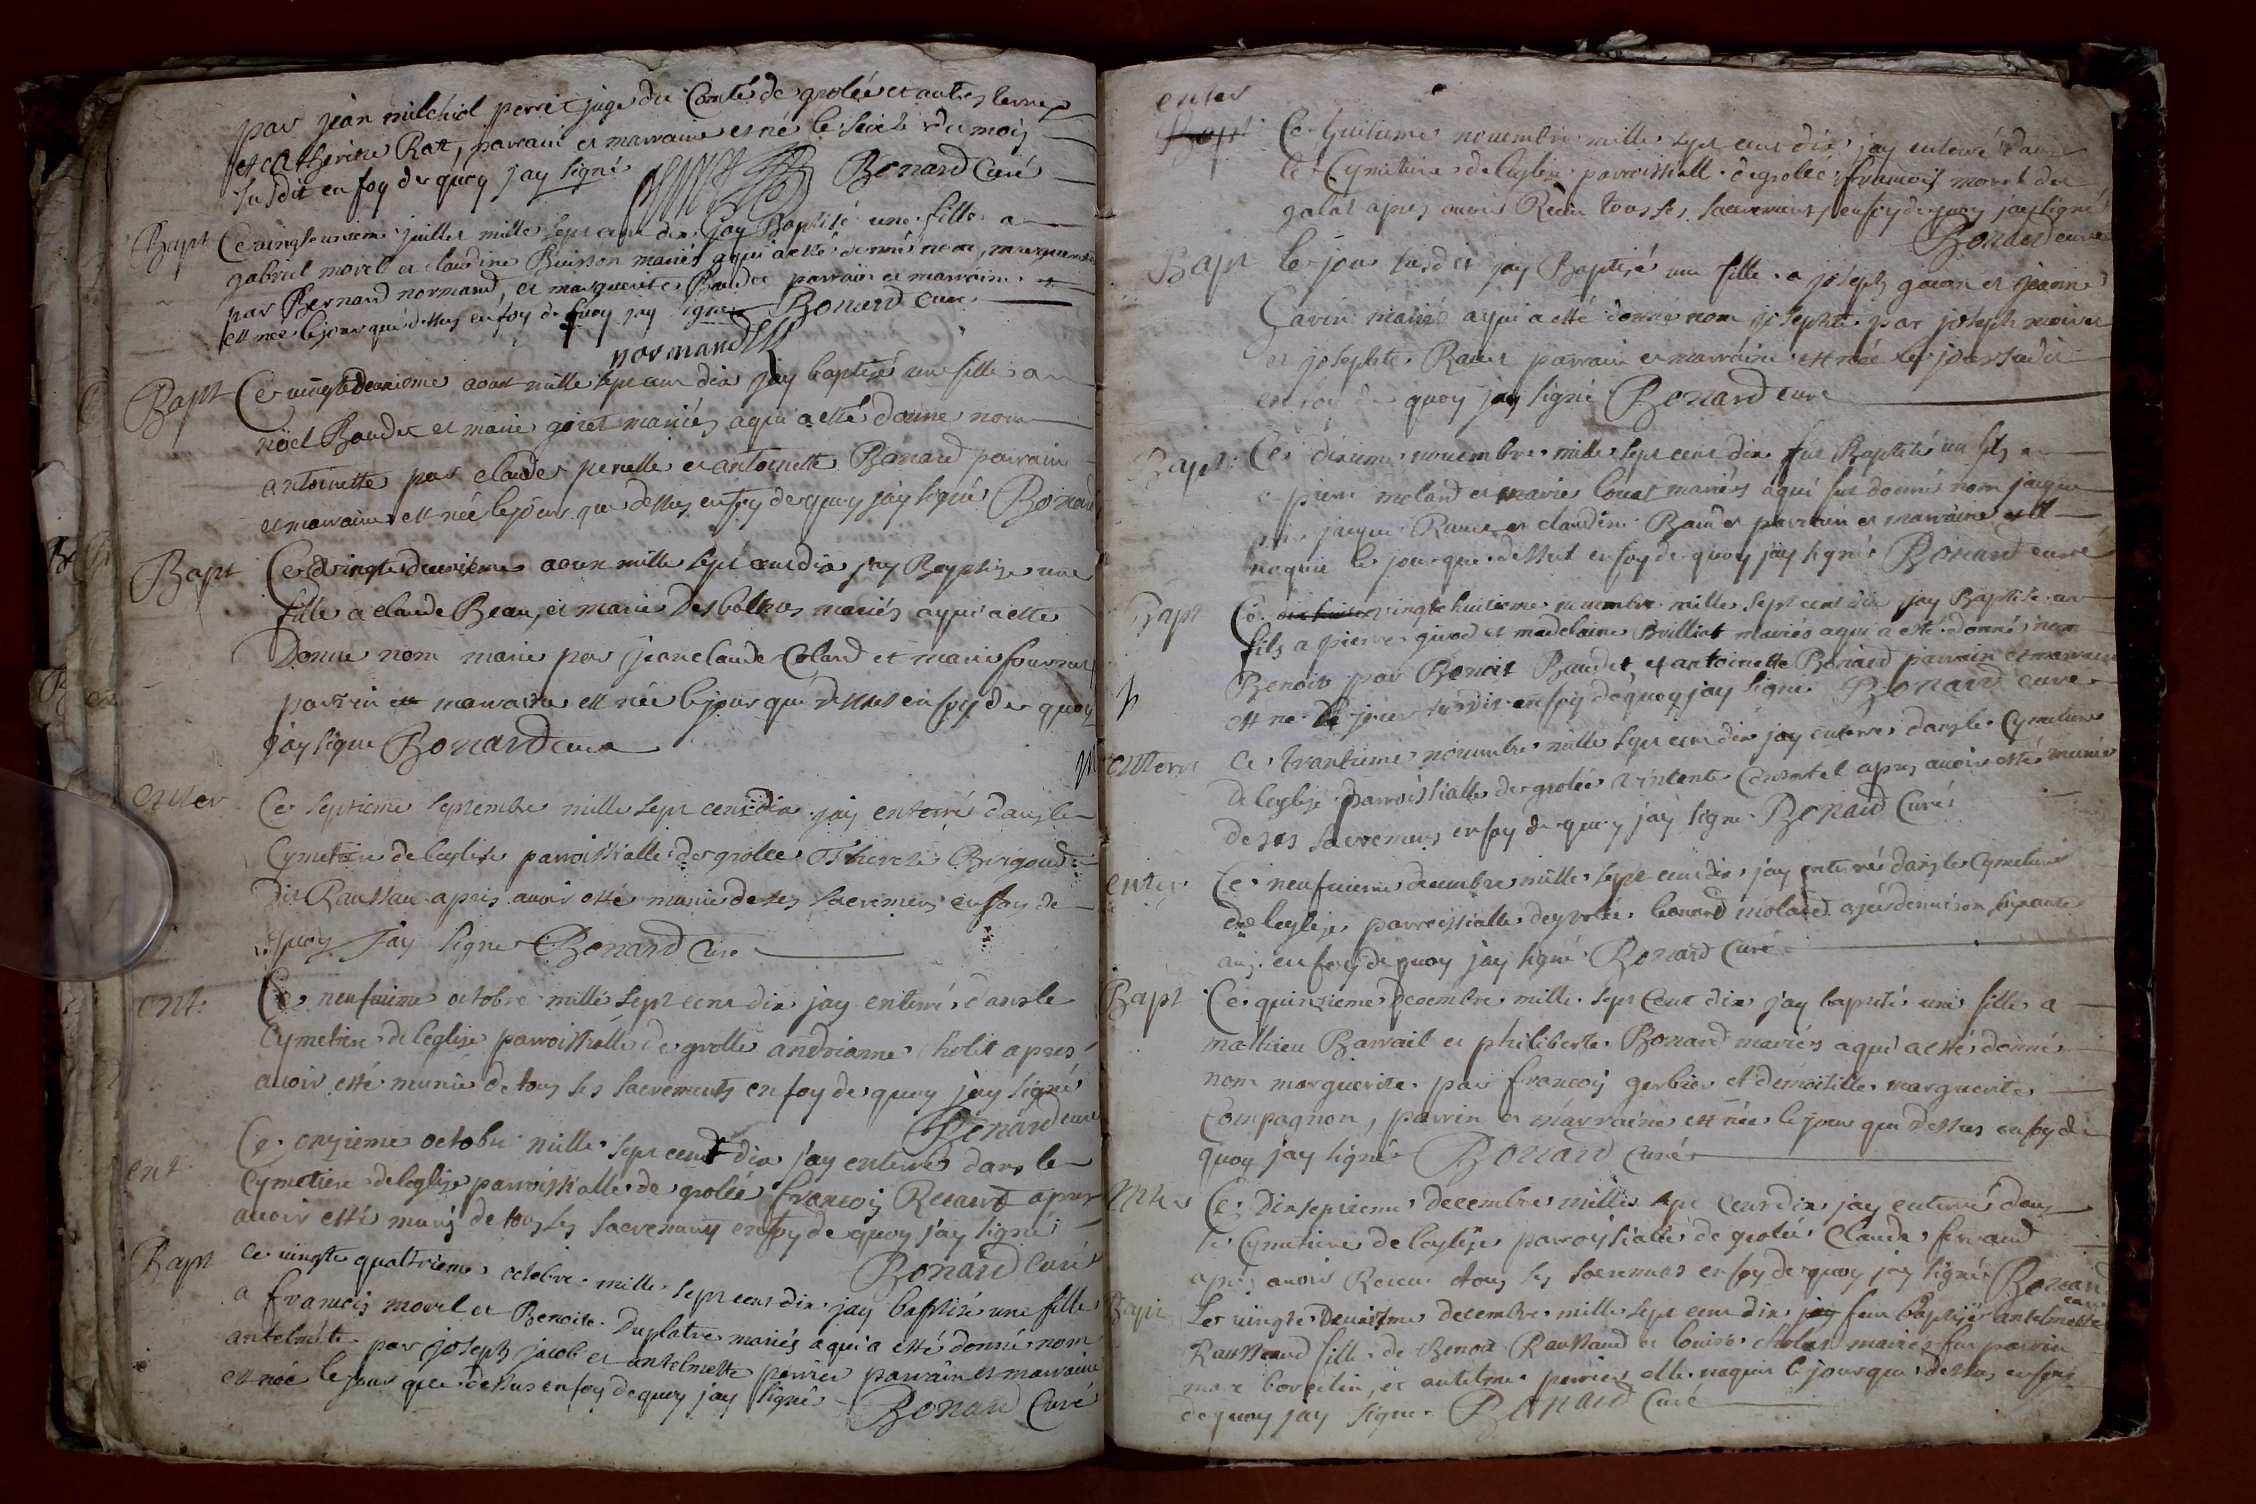 par jean milchiol perret juge du Comté de grolée et autres terres
et catherine Rat, parrain et marraine est né le du mois
susdit en foy de quoy jay signé Bonard Curé
Bapt Ce vingt unieme juillet mille sept cent dix jay Baptisé une fille a
gabriel morel et claudine Buisson mariés a qui a esté donné nom, marguerite
par Bernard normand, et marguerite Baudet parrain et marraine
est née le jour que dessus en foy de quoy jay signé Bonard Curé
normand
Bapt Ce vingt deuxieme aout mille sept cent dix jay baptisé une fille a
nöel Baudet et marie goiet mariés a qui a esté donné nom
antoinette par claude perelle et antoinette Bonard parrain
et marraine est née le jour que dessus en foy de quoy jay signé Bonard
Bapt Ce vingt deuxieme aoux mille sept cent dix jay Baptize une
fille a claude Beau, et marie Desbolhos mariés a qui a esté
Donné nom marie par jean claude Colard et marie fournet
parrin et marraine est née le jour que dessus en foy de quoy
jay signe Bonard Curé
enter Ce septieme septembre mille sept cent dix jay enterré dans le
Cymetiere de leglise parroissialle de grolée Therese Brigoud
dit Raussau apres avoir esté munie de ses sacremens en foy de
quoy Jay signe Bonard Curé
ent: Ce neufuieme octobre mille sept cent dix jay enterré dans le
Cymetiere de leglise parroissialle de grolle andrianne cholet apres
avoir esté munie de tous ses sacrements en foy de quoy jay signé
Bonard Curé
ent Ce onzieme octobre mille sept cent dix jay enterré dans le
Cymetiere de leglise parroissialle de grolée francois Recard apres
avoir esté muny de tous ses sacremens en foy de quoy jay signé
Bonard Curé
Bapt Ce vingte quattrieme octobre mille sept cent dix jay baptisé une fille
a francois morel et Benoite Duplatre mariés a qui a esté donné nom
antelmete par joseph jacob et antelmette perrier parrain et marraine
est née le jour que dessus en foy de quoy jay signé Bonard Curé
enter
Bapt Ce huitieme novembre mille sept cent dix jay enterré dans
le Cymetiere de leglise parroissiall de grolée francois morel du
galat apres avoir Receu tous ses sacremens en foy de quoy jay signé
Bonard Curé
Bapt le jour susdit jay Baptisé une fille a joseph gavan et jeanne
Gavin mariés a qui a esté donné nom josephte par joseph
et josephte Ravet parrain et marraine est née le jour susdit
en foy de quoy jay signé Bonard Curé
Bapt Ce dixieme novembre mille sept cent dix fut Baptisé un fils a
a pierre molard et marie louat mariés a qui fut donné nom jaque
par jaque Ravet et claudine Baudet parrain et marraine et il
naquit le jour que dessus en foy de quoy jay signé Bonard Curé
Bapt Ce vingte huitieme novembre mille sept cent dix jay Baptise un
fils a pierre givod et madelaine Brilliat mariés a qui a esté donné nom
Benoit par Benoit Baudet et antoinette Bonard parrain et marraine
est ne le jour susdit en foy de quoy jay signé Bonard Curé
enterré Ce trantieme novembre mille sept cent dix jay enterré dans le Cymetiere
de leglise parroissialle de grolée apres avoir esté munie
de ses sacremens en foy de quoy jay signé Bonard Curé
enter Ce neufuieme decembre mille sept cent dix jay enterré dans le Cymetiere
de leglise parroissialle de grolée leonard molard agé denviron soixante
ans en foy de quoy jay signé Bonard Curé
Bapt Ce quinzieme decembre mille sept cent dix jay baptisé une fille a
mathieu Barrail et philiberte Bonard mariés a qui a esté donné
nom marguerite par francois gerbier et demoiselle marguerite
Compagnon, parrin et marraine est née le jour que dessus en foy de
quoy jay signé Bonard Curé
Enter Ce dixseptieme decembre mille sept cent dix jay enterré dans
le Cymetiere de leglise parroysialle de grolée Claude ferraud
apres avoir Receu tous ses sacremens en foy de quoy jay signé Bonard Curé
Bapt Le vingte deuxieme decembre mille sept cent dix jay fut baptisée antelmette
Raussaud fille de Benoit Raussaud et louise cholat mariés fut parrin
marc borcelin, et antelme perrier elle naquit le jour que dessus en foy
de quoy jay signé Bonard Curé